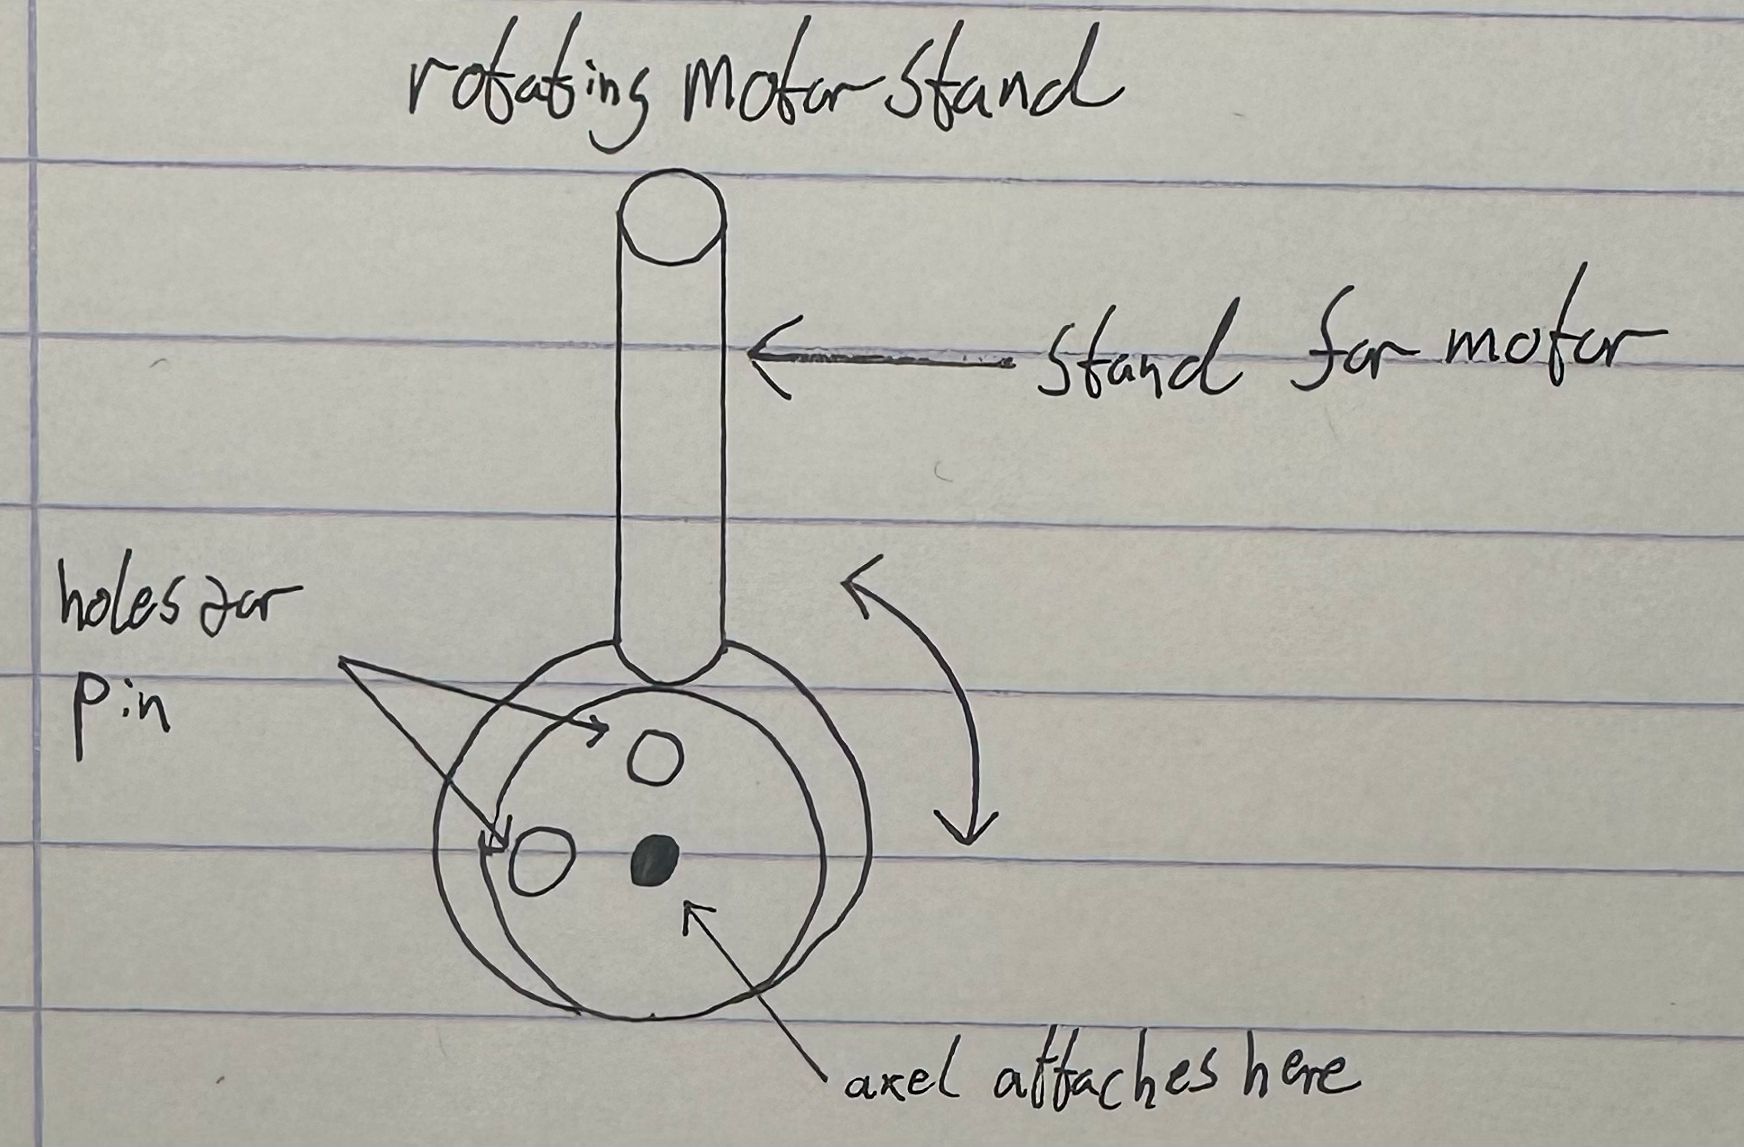 rotating motor stand
stand for motor
holes for
pin
axel attaches here